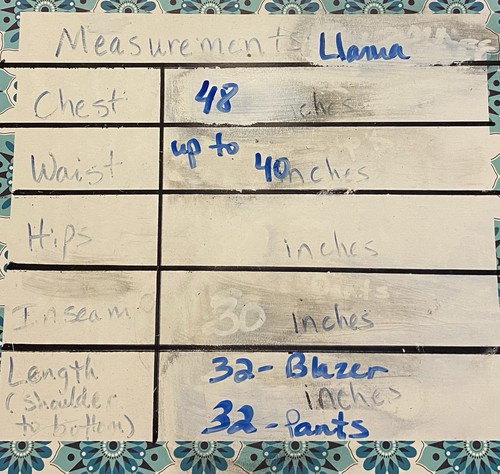 Measurements Llama
Chest 48 inches
Waist up to 40 inches
Hips inches
Inseam 30 inches
Length 32- Blazer
(shoulder inches
to bottom) 32-Pants